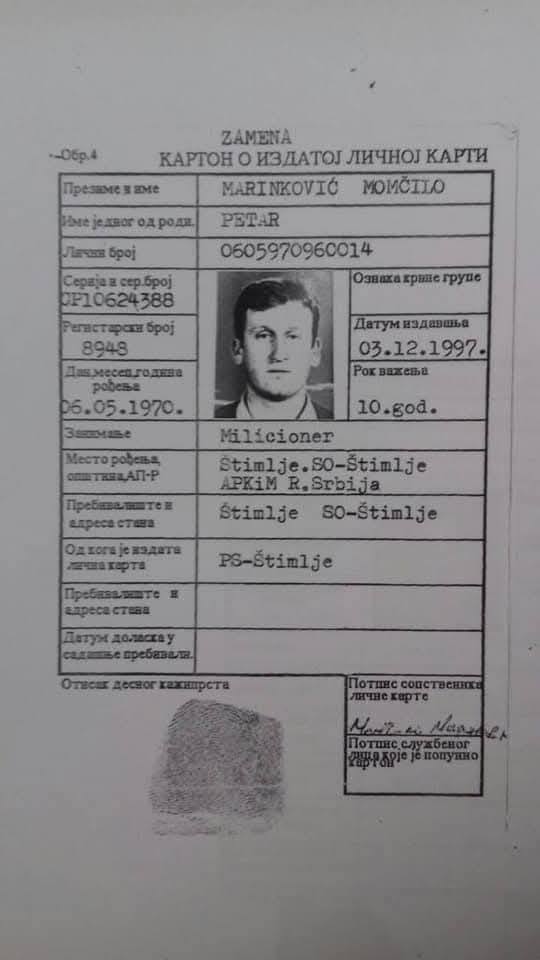 ZAMENA
Обр.4
КАРТОН О ИЗДАТОЈ ЛИЧНОЈ КАРТИ
Презиме и име MARINKOVIĆ MOMČILO
Име једног од роди. PETAR
Лични број 0605970960014
Серија и сер.број
10624388
Ознака крвне групе
Регистарски број
8948
Датум издавања
03.12.1997.
Дан,месец,година
рођења
06.05.1970.
Рок важења
10.god.
Занимање Milicioner
Место рођења,
општина,АП-Р
Štimlje.SO-Štimlje
APKiM R.Srbija
Пребивалиште и
адреса стана
Štimlje SO-Štimlje
Од кога је издата
лична карта
PS-Štimlje
Пребивалиште и
адреса стана
Датум доласка у
садашње пребивали.
Отисак десног кажипрста
Потпис сопственика
личне карте
Потпис службеног
лица које је попунио
картон